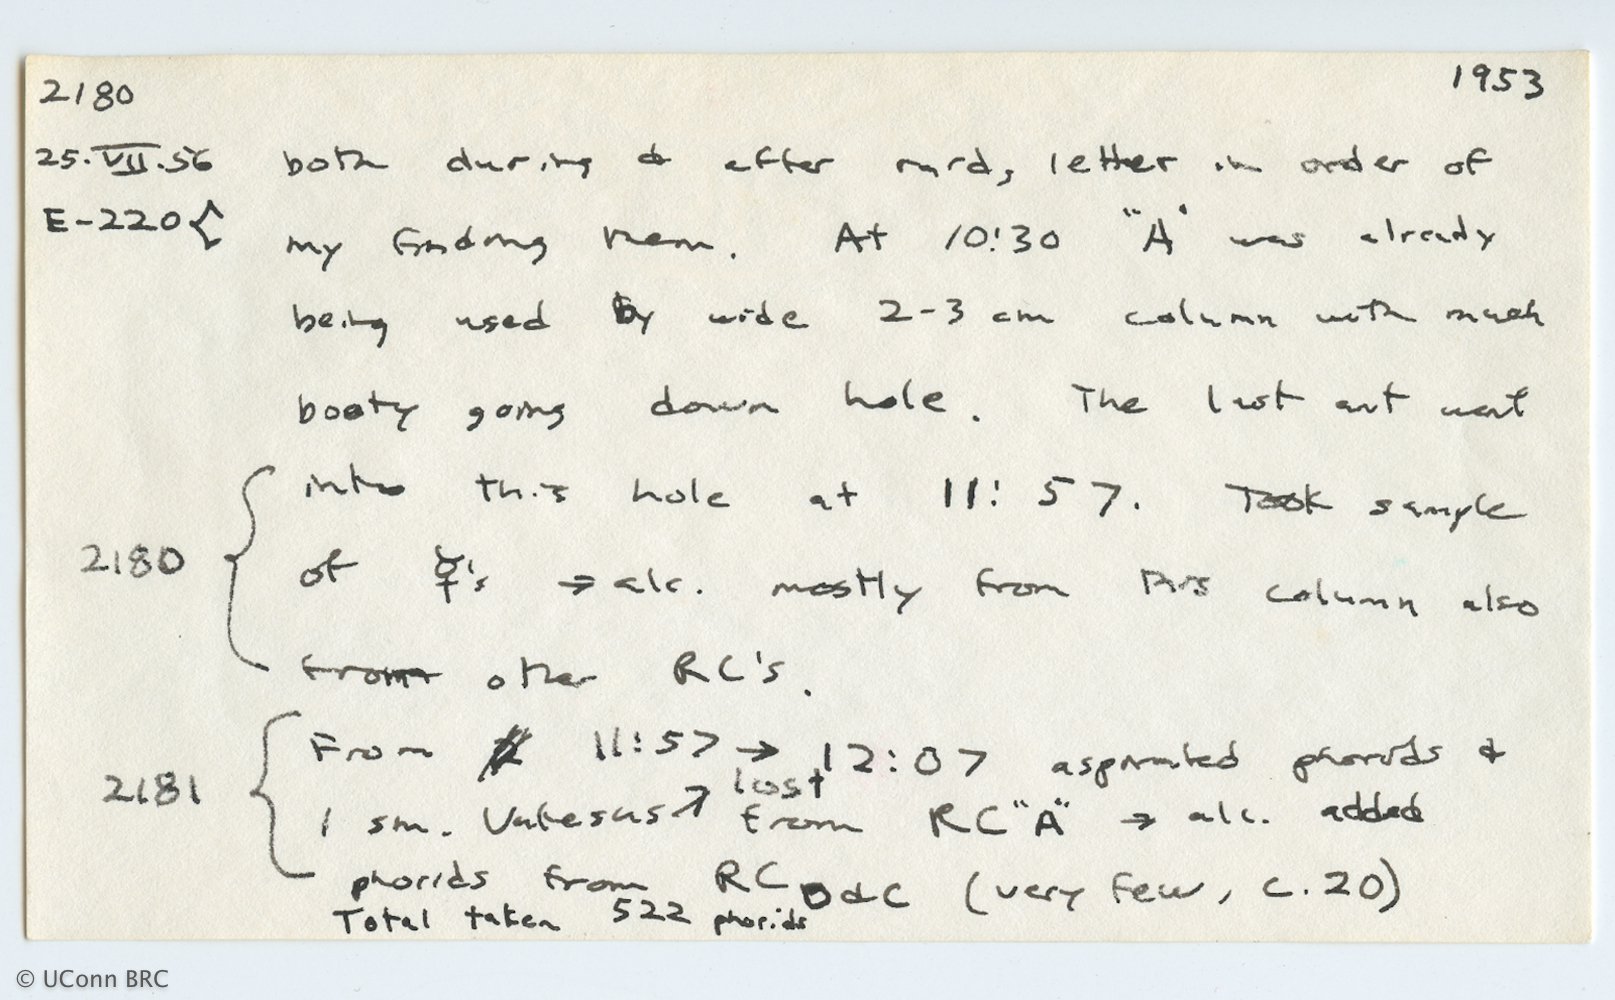 2180 1953
25.VII.56 both during & after raid, letter in order of
E-220{ my finding them. At 10:30 "A" was already
being used by wide 2-3 cm column with much
booty going down hole. The last ant went
into this hole at 11:57. Took sample
2180 { of ☿'s → alc. mostly from this column also
from other RC's.
From 11:57 → 12:07 aspirated phorids &
2181 { 1 sm. Vatesus ↗ lost from RC "A" → alc. added
phorids from RC D & C (very few, c. 20)
Total taken 522 phorids
© UConn BRC